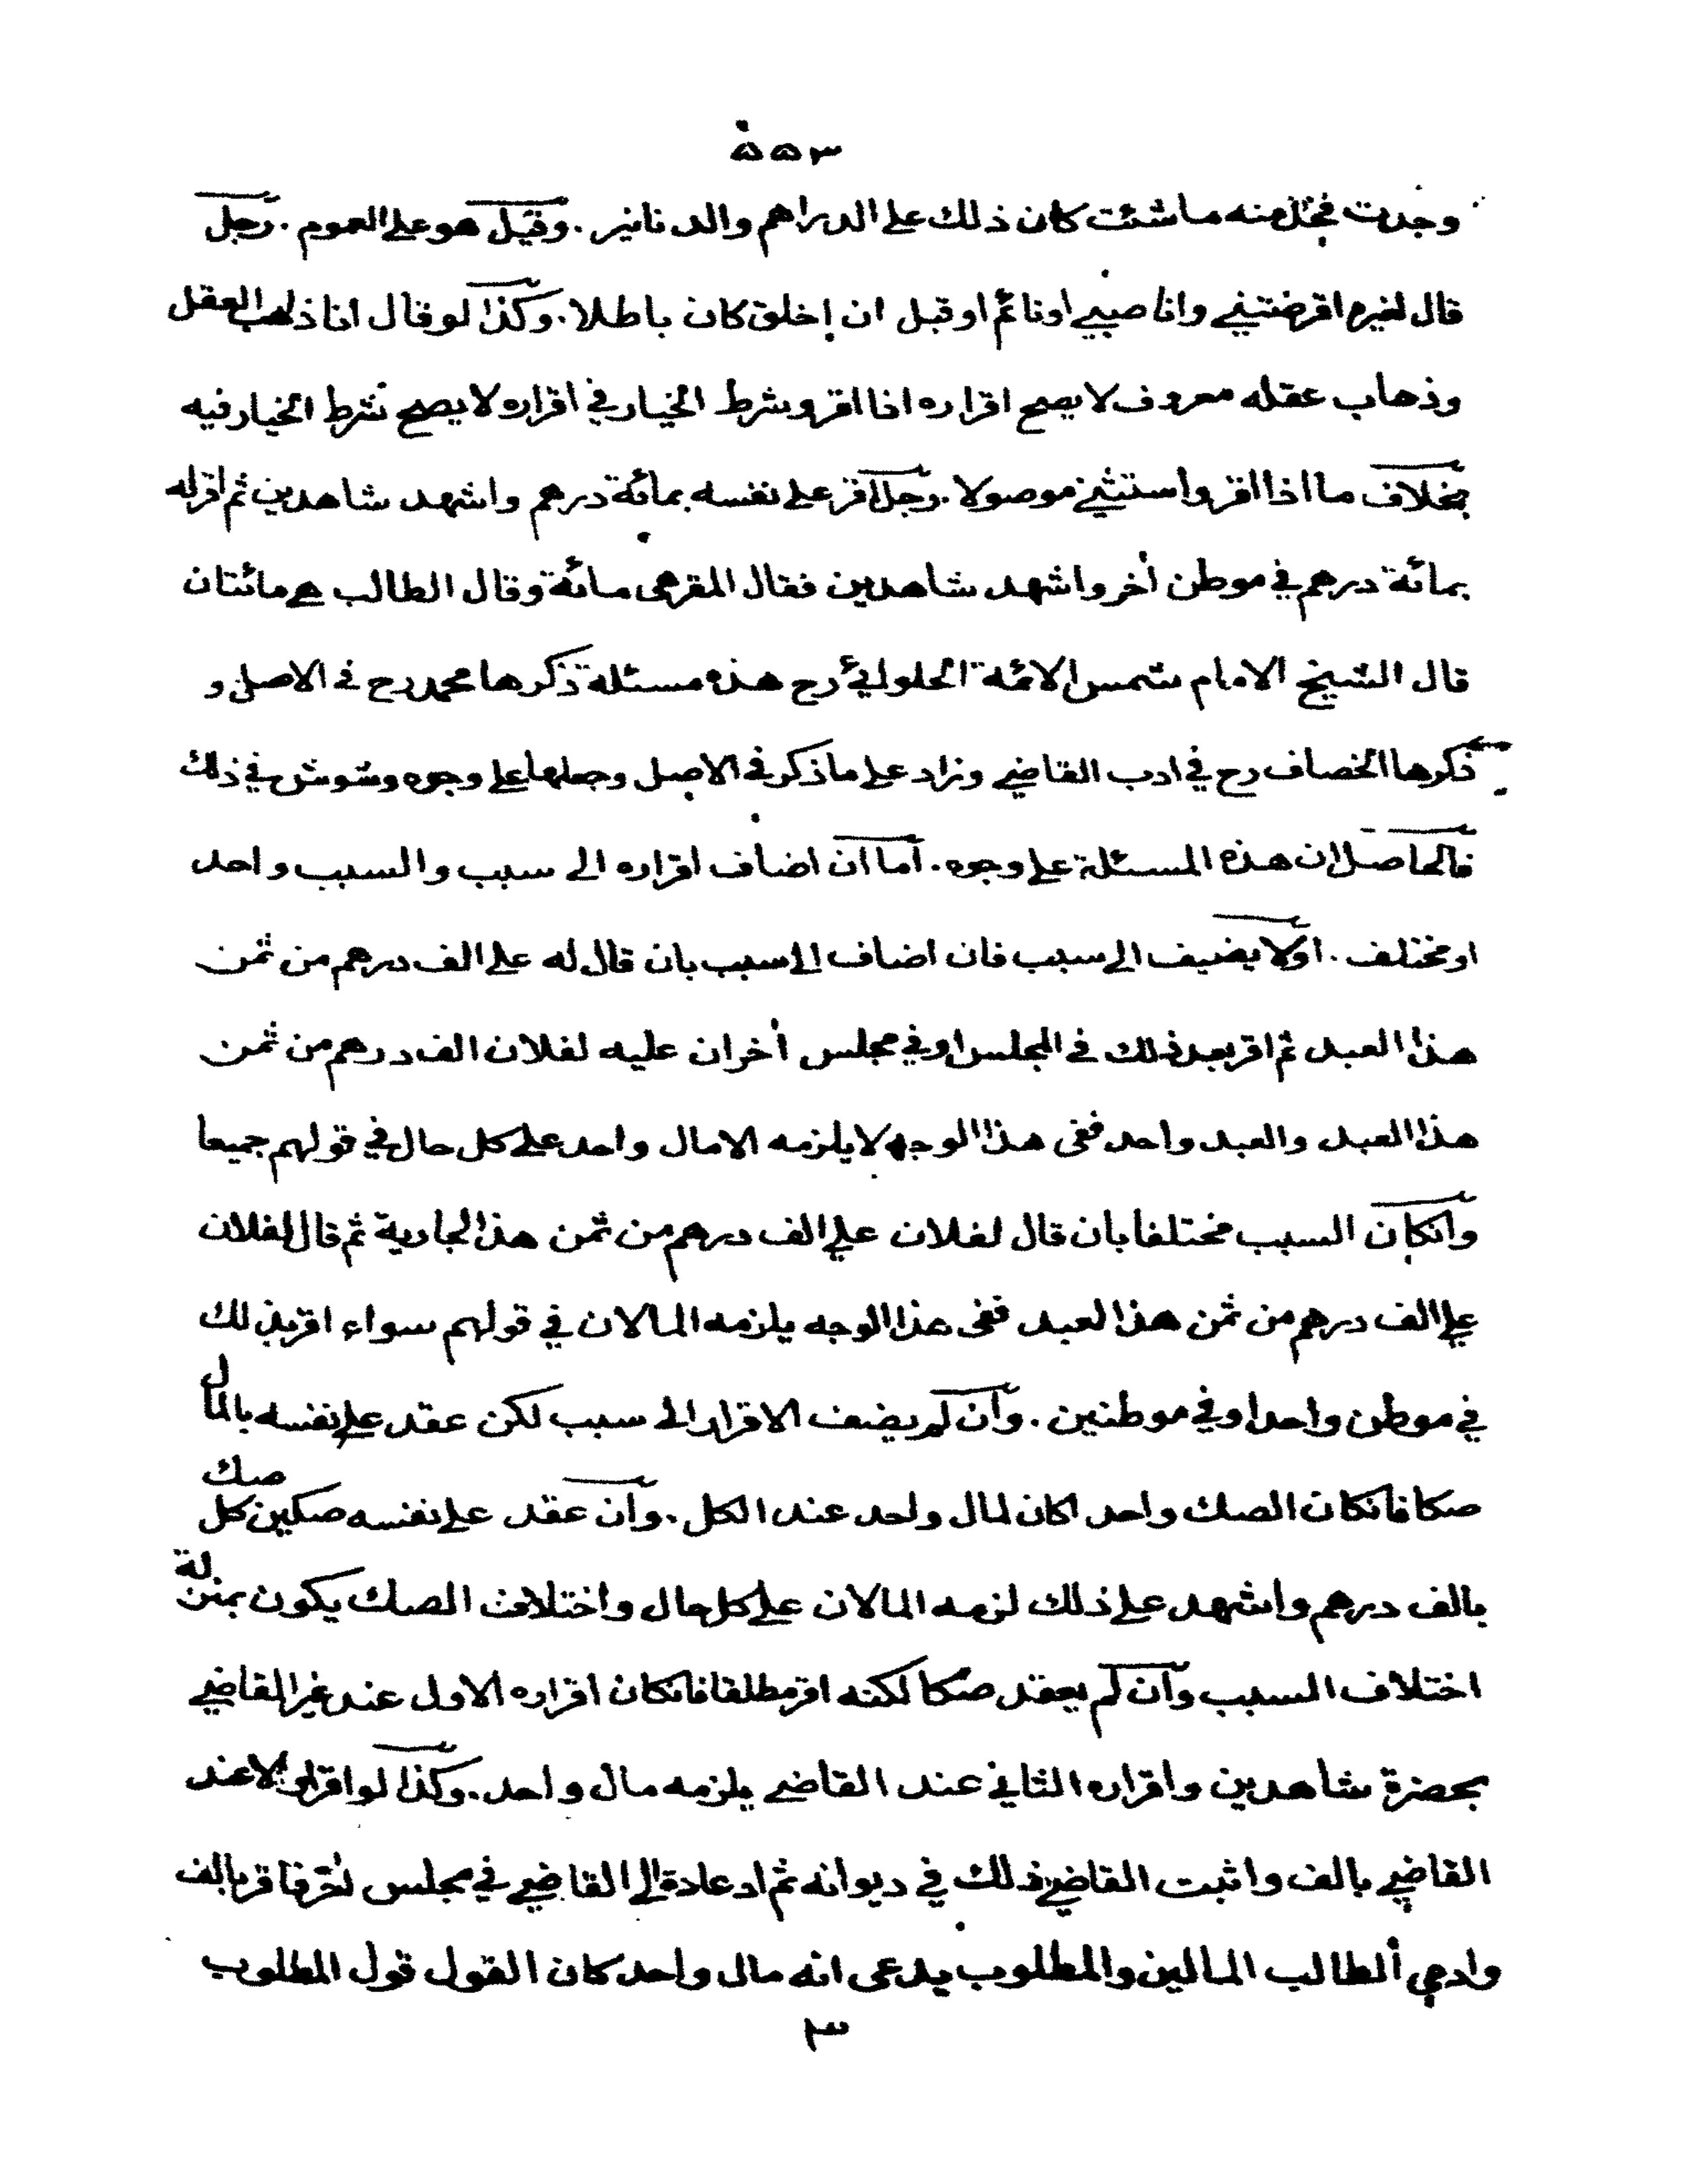 ٥٥٣
وجدت فخذ منه ما شئت كان ذلك على الدراهم والدنانير . وقيل هو على العموم . رجل
قال لغيره اقرضتني وانا صبي او نائم او قبل ان اخلق كان باطلا . وكذا لو قال انا ذاهب العقل
وذهاب عقله معروف لا يصح اقراره اذا اقر وشرط الخيار في اقراره لا يصح شرط الخيار فيه
بخلاف ما اذا اقر واستثنى موصولا . رجل اقر على نفسه بمائة درهم واشهد شاهدين ثم اقر له
بمائة درهم في موطن أخر واشهد شاهدين فقال المقر هى مائة وقال الطالب هي مائتان
قال الشيخ الامام شمس الائمة الحلوائي رح هذه مسئلة ذكرها محمد رح في الاصل و
ذكرها الخصاف رح في ادب القاضي وزاد على ما ذكر في الاصل وجعلها على وجوه وشوش في ذلك
فالحاصل ان هذه المسئلة على وجوه . أما ان اضاف اقراره الى سبب والسبب واحد
او مختلف . اولا يضيف الى سبب فان اضاف الى سبب بان قال له علي الف درهم من ثمن
هذا العبد ثم اقر بعد ذلك في المجلس او في مجلس أخر ان عليه لفلان الف درهم من ثمن
هذا العبد والعبد واحد ففى هذا الوجه لا يلزمه الا مال واحد على كل حال في قولهم جميعا
وانكان السبب مختلفا بان قال لفلان علي الف درهم من ثمن هذا لجارية ثم قال لفلان
علي الف درهم من ثمن هذا لعبد ففى هذا الوجه يلزمه المالان في قولهم سواء اقر بذلك
في موطن واحد او في موطنين . وان لم يضف الاقرار الى سبب لكن عقد على نفسه بالمال
صكا فانكان الصك واحد اكان لمال واحد عند الكل . وان عقد على نفسه صكين كل صك
بالف درهم واشهد على ذلك لزمه المالان على كل حال واختلاف الصك يكون بمنزلة
اختلاف السبب وان لم يعقد صكا لكنه اقر مطلقا فانكان اقراره الاول عند غير القاضي
بحضرة شاهدين واقراره الثاني عند القاضي يلزمه مال واحد . وكذا لو اقر اولا عند
القاضي بالف واثبت القاضي ذلك في ديوانه ثم اد عادة الى القاضي في مجلس أخر فاقر بالف
وادعى ألطالب المالين والمطلوب يدعى انه مال واحد كان القول قول المطلوب
٣